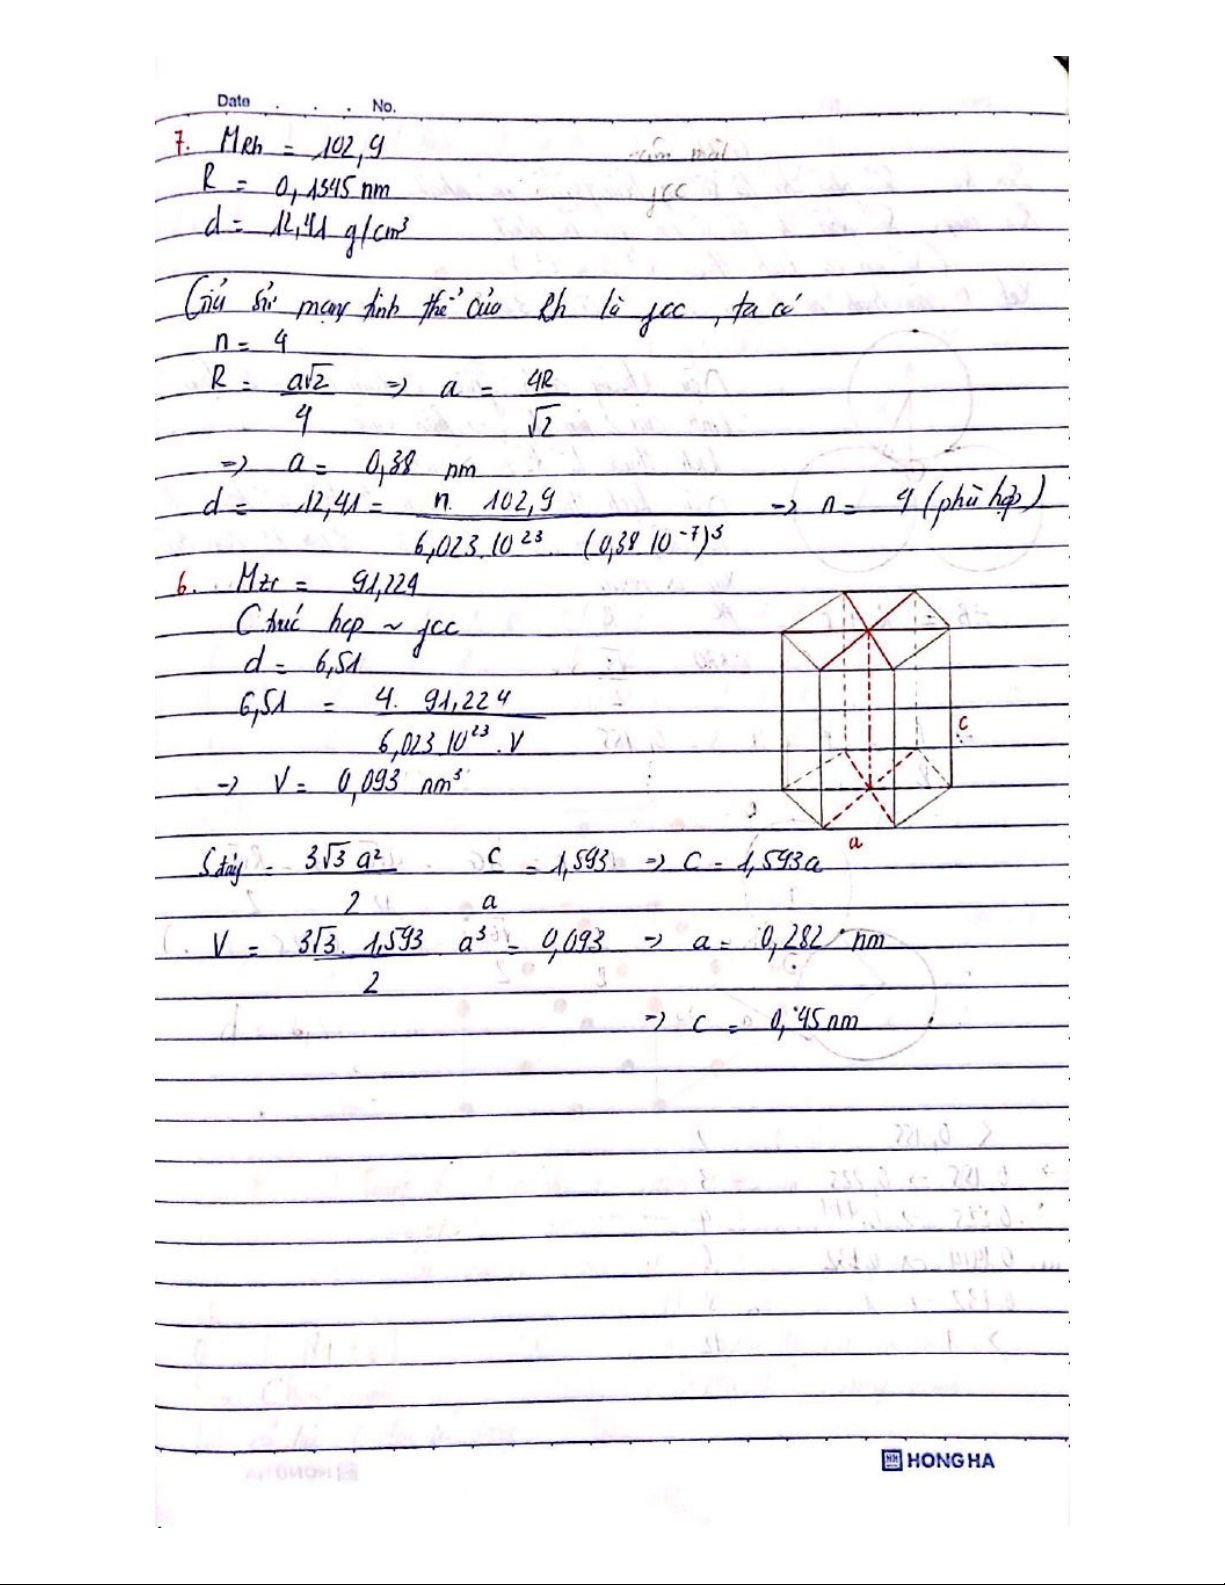 Date . . . No.
7. MRh = 102,9
R = 0,1345 nm
d = 12,41 g/cm³
Giả sử mạng tinh thể của Rh là fcc, ta có
n = 4
R = a√2 / 4 => a = 4R / √2
=> a = 0,38 nm
d = 12,41 = n. 102,9 / 6,023.10²³ . (0,38.10⁻⁷)³ => n = 4 (phù hợp)
6. MZr = 91,224
C trúc hcp ~ fcc
d = 6,51
6,51 = 4. 91,224 / 6,023.10²³ . V
=> V = 0,093 nm³
c
a
Sđáy = 3√3 a² / 2 c / a = 1,593 => c = 1,593a
V = 3√3. 1,593 / 2 a³ = 0,093 => a = 0,282 nm
=> c = 0,45 nm
HH HONG HA